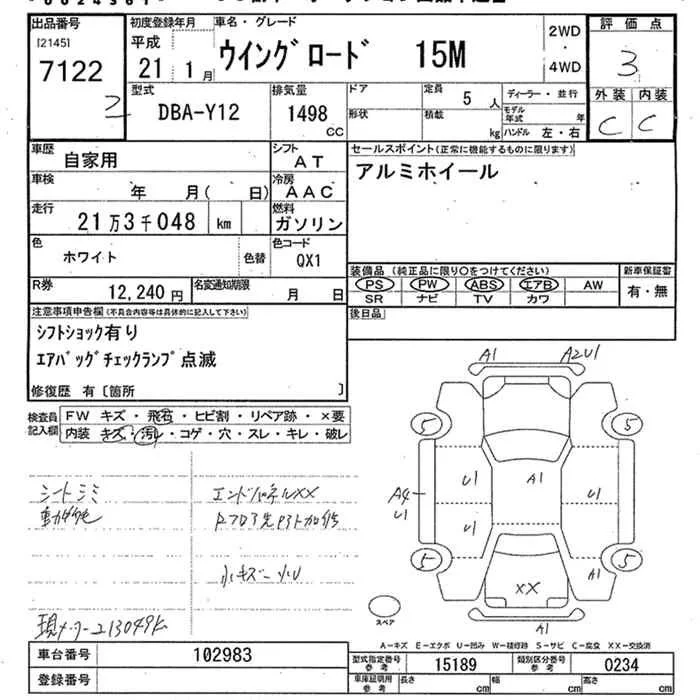 出品番号 初度登録年月 車名・グレード 2WD ・ 4WD 評価点
[2145]
7122
2
平成
21 1月
ウイングロード 15M
3
型式 排気量 ドア 定員 ディーラー・並行 外装 内装
DBA-Y12 1498 CC 5人 モデル年式 年
形状 積載 kg ハンドル 左・右 C C
車歴 自家用 シフト AT セールスポイント(正常に機能するものに限ります)
アルミホイール
車検 年 月( 日) 冷房 AAC
走行 21万3千048 km 燃料 ガソリン
色 ホワイト 色替 色コード QX1
装備品 (純正品に限り○をつけてください) 新車保証書
PS PW ABS エアB AW 有・無
SR ナビ TV カワ
R券 12,240円 名変通知期限 月 日
後日品
注意事項申告欄(不具合内容等は具体的に記入して下さい)
シフトショック有り
エアバッグチェックランプ点滅
修復歴 有〔箇所 〕
検査員記入欄 FW キズ・飛石・ヒビ割・リペア跡・×要
内装 キズ・汚レ・コゲ・穴・スレ・キレ・破レ
A1 A2U1
5 5
U1 A1 U1
A4
U1
U1
5 5
A1
XX
A1
スペア
シートシミ エンドパネルXX
小キズ 小U
現メーター213049k
A－キズ E－エクボ U－凹み W－補修跡 S－サビ C－腐食 XX－交換済
車台番号 102983
型式指定番号 参考 15189 類別区分番号 参考 0234
登録番号
車庫証明用 参考 長さ cm 幅 cm 高さ cm